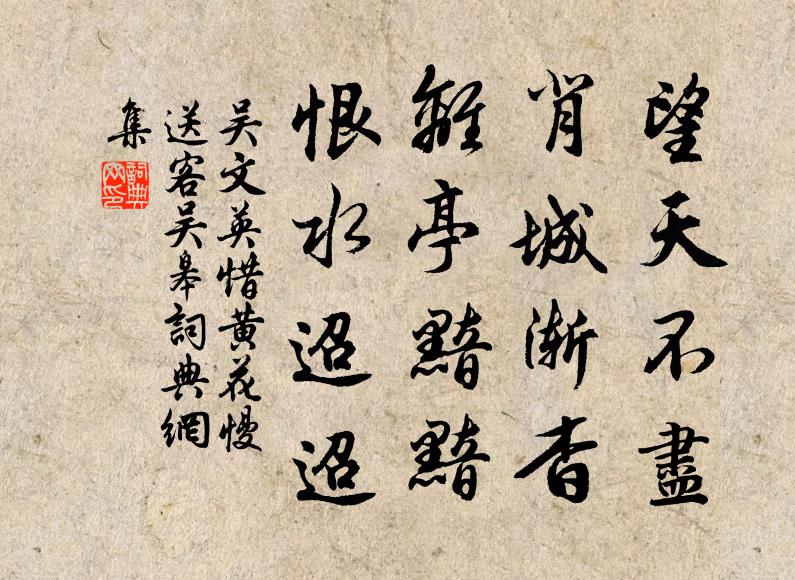 望天不盡
肖城漸杳
離亭黯黯
恨水迢迢
吴文英惜黄花慢
送客吴皋詞典網
集
詞典
网印